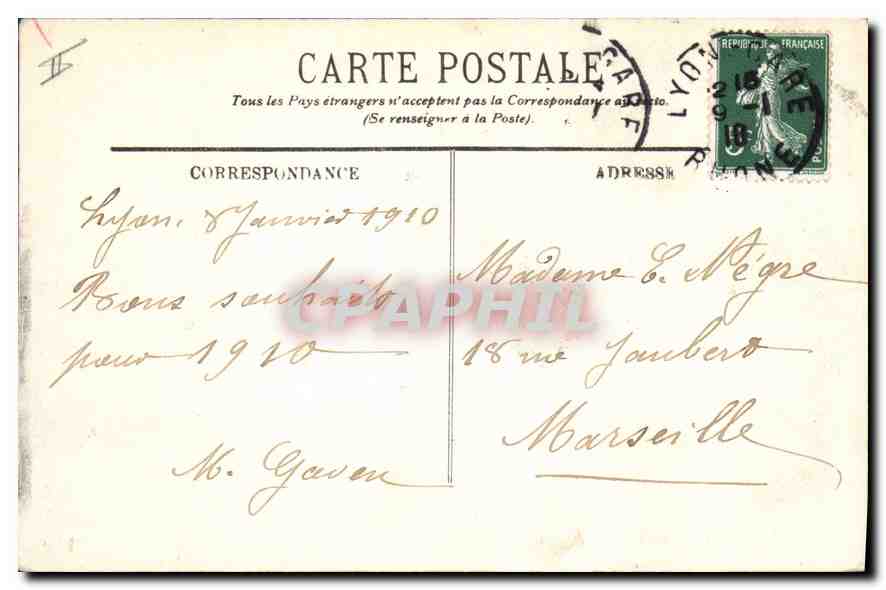 II
CARTE POSTALE
Tous les Pays étrangers n'acceptent pas la Correspondance au recto.
(Se renseigner à la Poste).
REPUBLIQUE FRANÇAISE
LYON GARE
RHONE
9-1
10
GARE
CORRESPONDANCE
ADRESSE
Lyon, 8 Janvier 1910
Bons souhaits
pour 1910
M. Gaven
Madame C. Nègre
18 rue Jaubert
Marseille
CPAPHIL